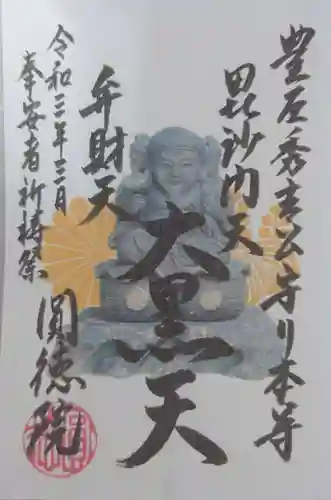 豊臣秀吉公守り本尊
毘沙門天
大黒天
弁財天
令和三年三月
奉安者祈祷祭
圓徳院